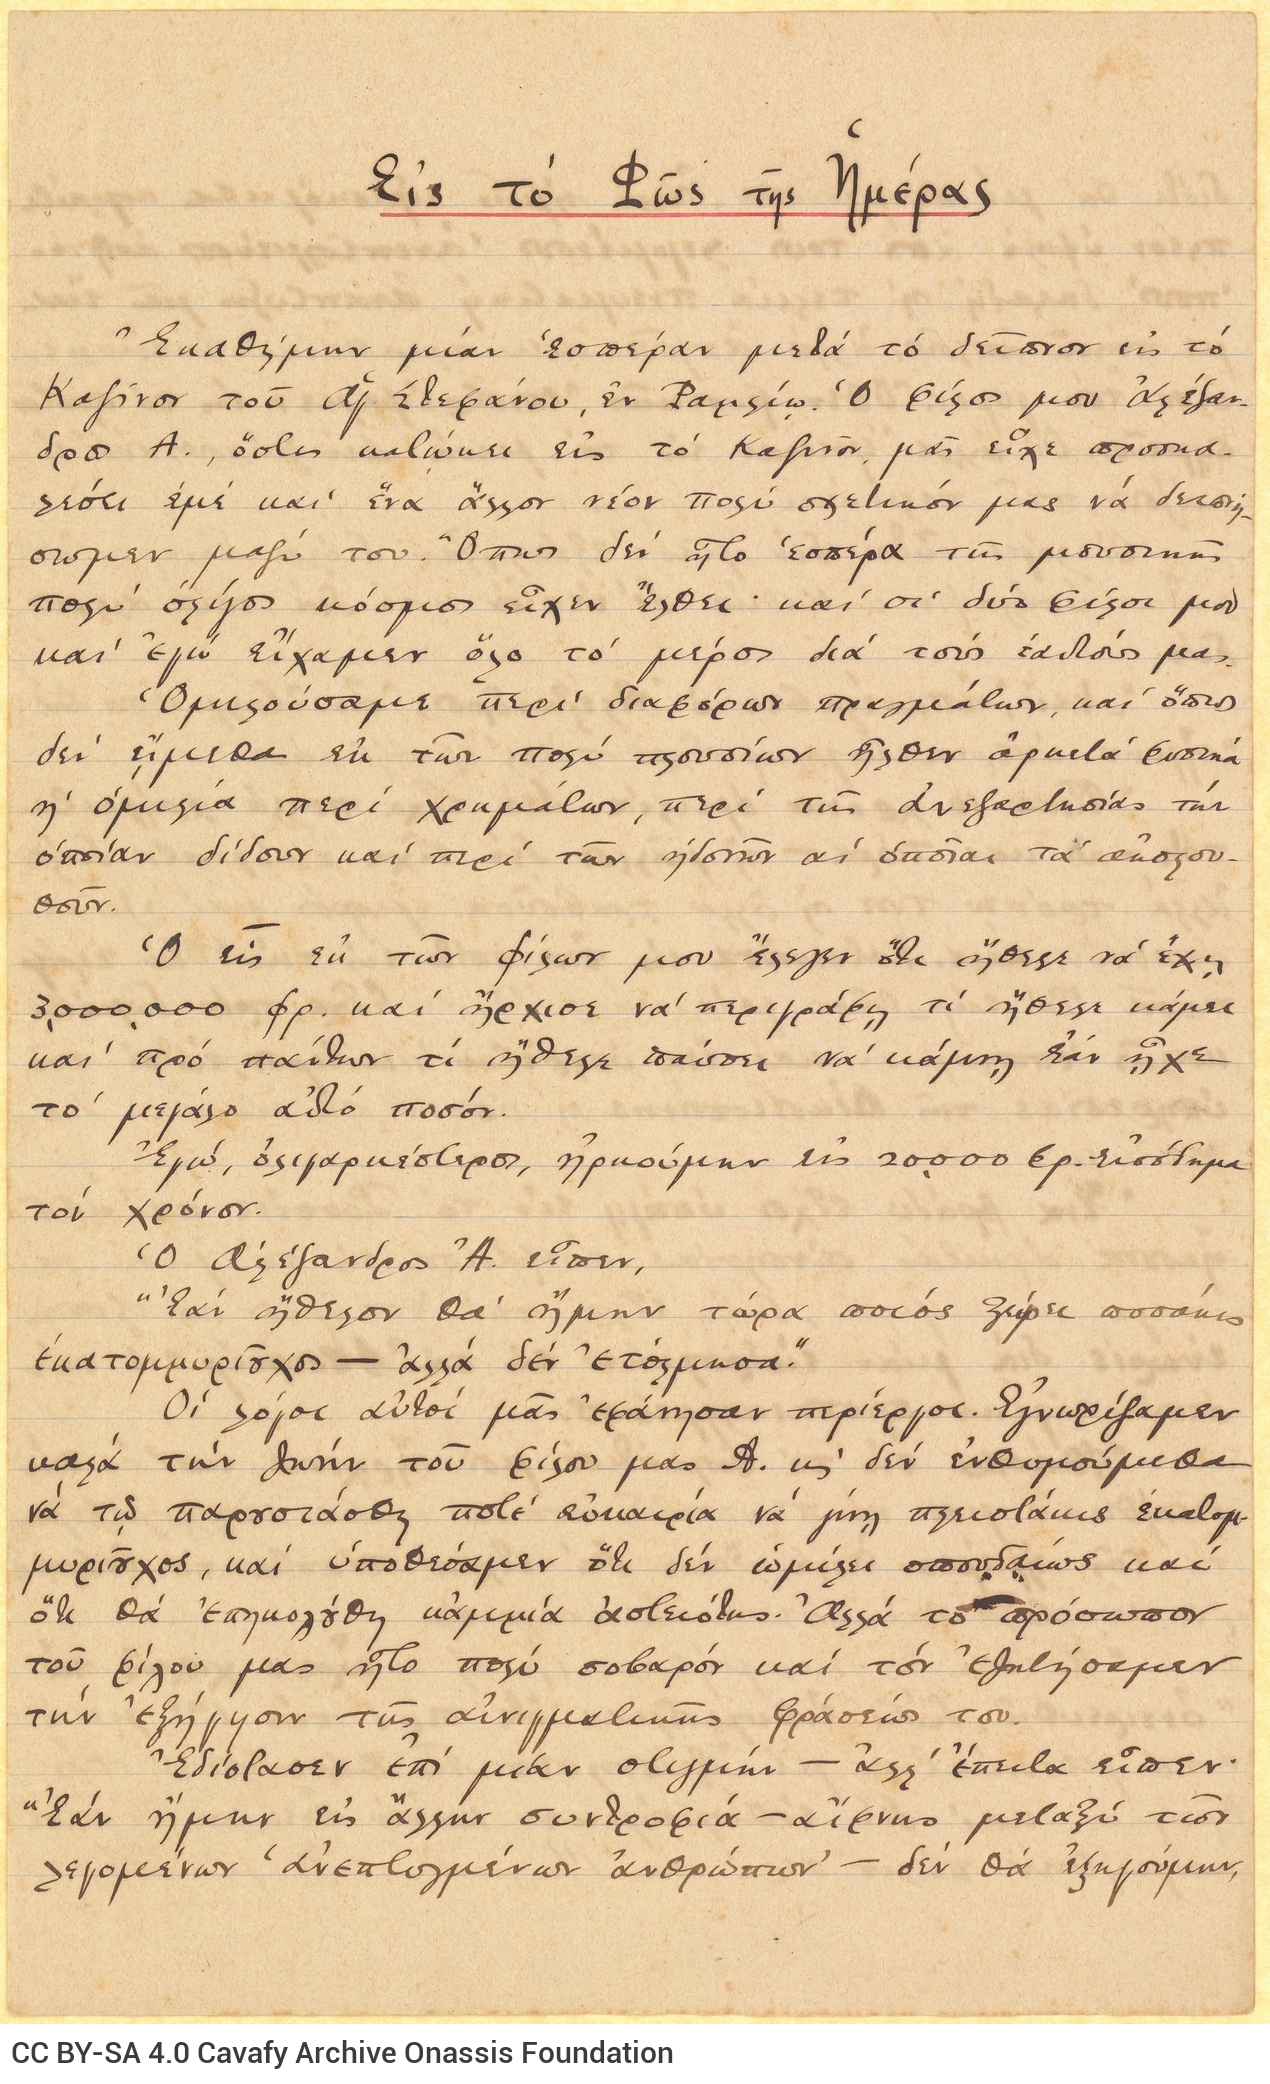 Εἰς τό Φῶς τῆς Ἡμέρας
Ἐκαθήμην μίαν ἑσπέραν μετά τό δεῖπνον εἰς τό
Καζίνον τοῦ Ἁγ. Στεφάνου, ἐν Ραμλίῳ. Ὁ φίλος μου Ἀλέξαν-
δρος Α., ὅστις κατῴκει εἰς τό Καζῖνον, μᾶς εἶχε προσκα-
λέσει ἐμέ καί ἕνα ἄλλον νέον πολύ σχετικόν μας νά δειπνή-
σωμεν μαζύ του. Ὅπως δέν ἦτο ἑσπέρα τῆς μουσικῆς
πολύ ὀλίγος κόσμος εἶχεν ἔλθει· καί οἱ δύο φίλοι μου
καί ἐγώ εἴχαμεν ὅλο τό μέρος διά τούς ἑαυτούς μας.
Ὁμιλούσαμε περί διαφόρων πραγμάτων, καί ὅπως
δέν εἴμεθα ἐκ τῶν πολύ πλουσίων ἦλθεν ἀρκετά φυσικά
ἡ ὁμιλία περί χρημάτων, περί τῆς ἀνεξαρτησίας τήν
ὁποίαν δίδουν καί περί τῶν ἡδονῶν αἱ ὁποῖαι τά ἀκολου-
θοῦν.
Ὁ εἷς ἐκ τῶν φίλων μου ἔλεγεν ὅτι ἤθελε νά ἔχῃ
3,000,000 φρ. καί ἤρχισε νά περιγράφῃ τί ἤθελε κάμει
καί πρό πάντων τί ἤθελε παύσει νά κάμνῃ ἐάν εἶχε
τό μεγάλο αὐτό ποσόν.
Ἐγώ, ὀλιγαρκέστερος, ἠρκούμην εἰς 20,000 φρ. εἰσόδημα
τόν χρόνον.
Ὁ Ἀλέξανδρος Ἀ. εἶπεν,
"Ἐάν ἤθελον θά ἤμην τώρα ποιός ξεύρει ποσάκις
ἑκατομμυριοῦχος — ἀλλά δέν ἐτόλμησα."
Οἱ λόγοι αὐτοί μᾶς ἐφάνησαν περίεργοι. Ἐγνωρίζαμεν
καλά τήν ζωήν τοῦ φίλου μας Α. κ' δέν ἐνθυμούμεθα
νά τῷ παρουσιάσθη ποτέ εὐκαιρία νά γίνῃ πλειστάκις ἑκατομ-
μυριοῦχος, καί ὑποθέσαμεν ὅτι δέν ὡμίλει σπουδαίως καί
ὅτι θά ἐπηκολούθη κἀμμία ἀστειότης. Ἀλλά τό πρόσωπον
τοῦ φίλου μας ἦτο πολύ σοβαρόν καί τόν ἐζητήσαμεν
τήν ἐξήγησιν τῆς αἰνιγματικῆς φράσεώς του.
Ἐδίστασεν ἐπί μίαν στιγμήν — ἀλλ' ἔπειτα εἶπεν·
"Ἐάν ἤμην εἰς ἄλλην συντροφιά — αἴφνης μεταξύ τῶν
λεγομένων 'ἀνεπτυγμένων ἀνθρώπων' — δέν θά ἐξηγούμην,
CC BY-SA 4.0 Cavafy Archive Onassis Foundation